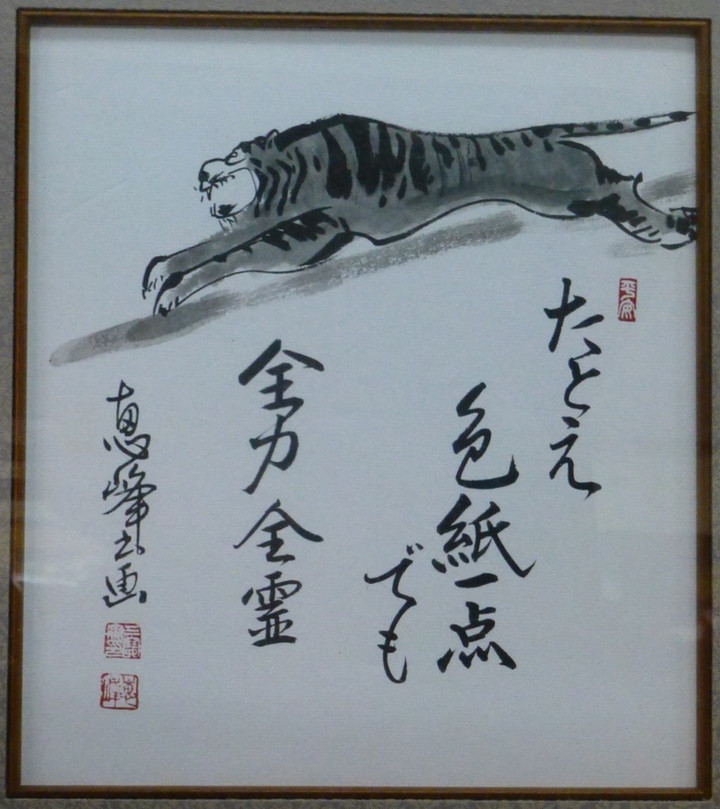 たとえ
色紙一点
でも
全力全霊
恵峰書画